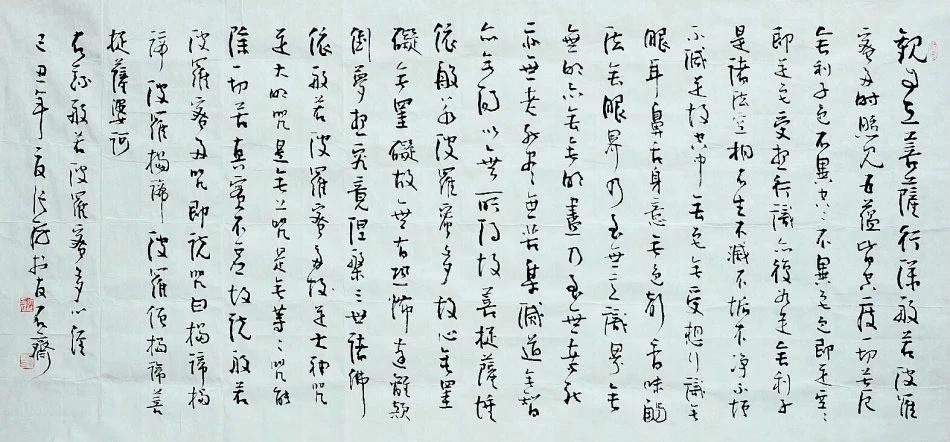 觀自在菩薩行深般若波羅
蜜多時照見五蘊皆空度一切苦厄
舍利子色不異空〻不異色色即是空〻
即是色受想行識亦復如是舍利子
是諸法空相不生不滅不垢不淨不增
不減是故空中無色無受想行識無
眼耳鼻舌身意無色聲香味觸
法無眼界乃至無意識界無
無明亦無無明盡乃至無老死
亦無老死盡無苦集滅道無智
亦無得以無所得故菩提薩埵
依般若波羅蜜多故心無罣
礙無罣礙故無有恐怖遠離顛
倒夢想究竟涅槃三世諸佛
依般若波羅蜜多故是大神咒
是大明咒是無上咒是無等〻咒能
除一切苦真實不虛故說般若
波羅蜜多咒即說咒曰揭諦揭
諦波羅揭諦波羅僧揭諦菩
提薩婆訶
右錄般若波羅蜜多心經
己丑年夏 石齋